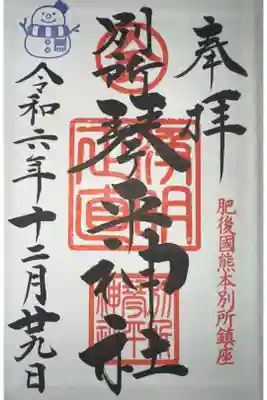 奉拝
肥後國熊本別所鎮座
別所琴平神社
浄明
正直
令和六年十二月廿九日